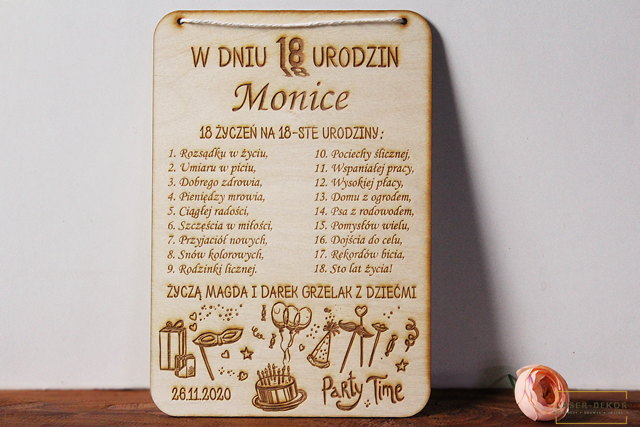 W DNIU 18 URODZIN
Monice
18 ŻYCZEŃ NA 18-STE URODZINY:
1. Rozsądku w życiu,
2. Umiaru w piciu,
3. Dobrego zdrowia,
4. Pieniędzy mrowia,
5. Ciągłej radości,
6. Szczęścia w miłości,
7. Przyjaciół nowych,
8. Snów kolorowych,
9. Rodzinki licznej.
10. Pociechy ślicznej,
11. Wspaniałej pracy,
12. Wysokiej płacy,
13. Domu z ogrodem,
14. Psa z rodowodem,
15. Pomysłów wielu,
16. Dojścia do celu,
17. Rekordów bicia,
18. Sto lat życia!
ŻYCZĄ MAGDA I DAREK GRZELAK Z DZIEĆMI
26.11.2020
Party Time